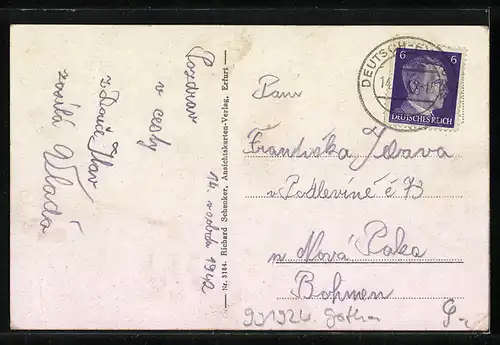 Pozdrav
z cesty
zasílá Wlada
14. 1942
Nr. 3164. Richard Schenker, Ansichtskarten-Verlag, Erfurt
DEUTSCH-
14.
6 6
DEUTSCHES REICH
Paní
Františka
v Podlevíně č 73
Nová Paka
Böhmen
991926 Gotha